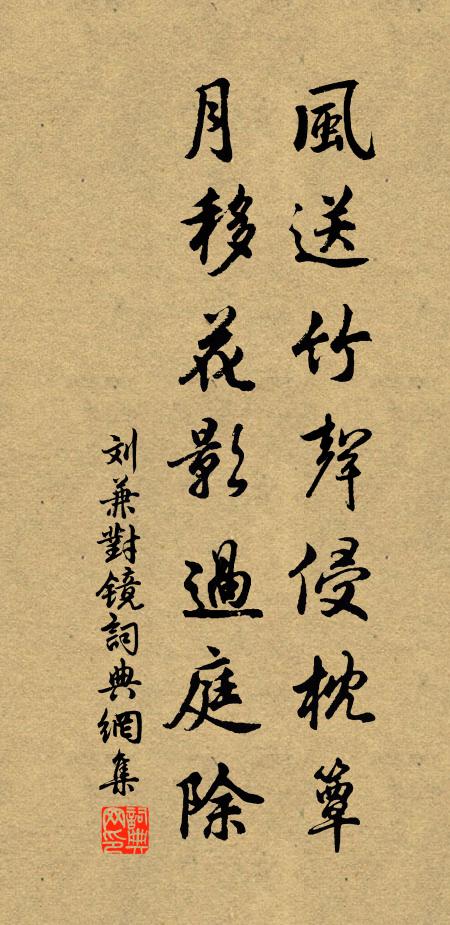 風送竹聲侵枕簟
月移花影過庭除
刘兼對镜詞典網集
詞典网印